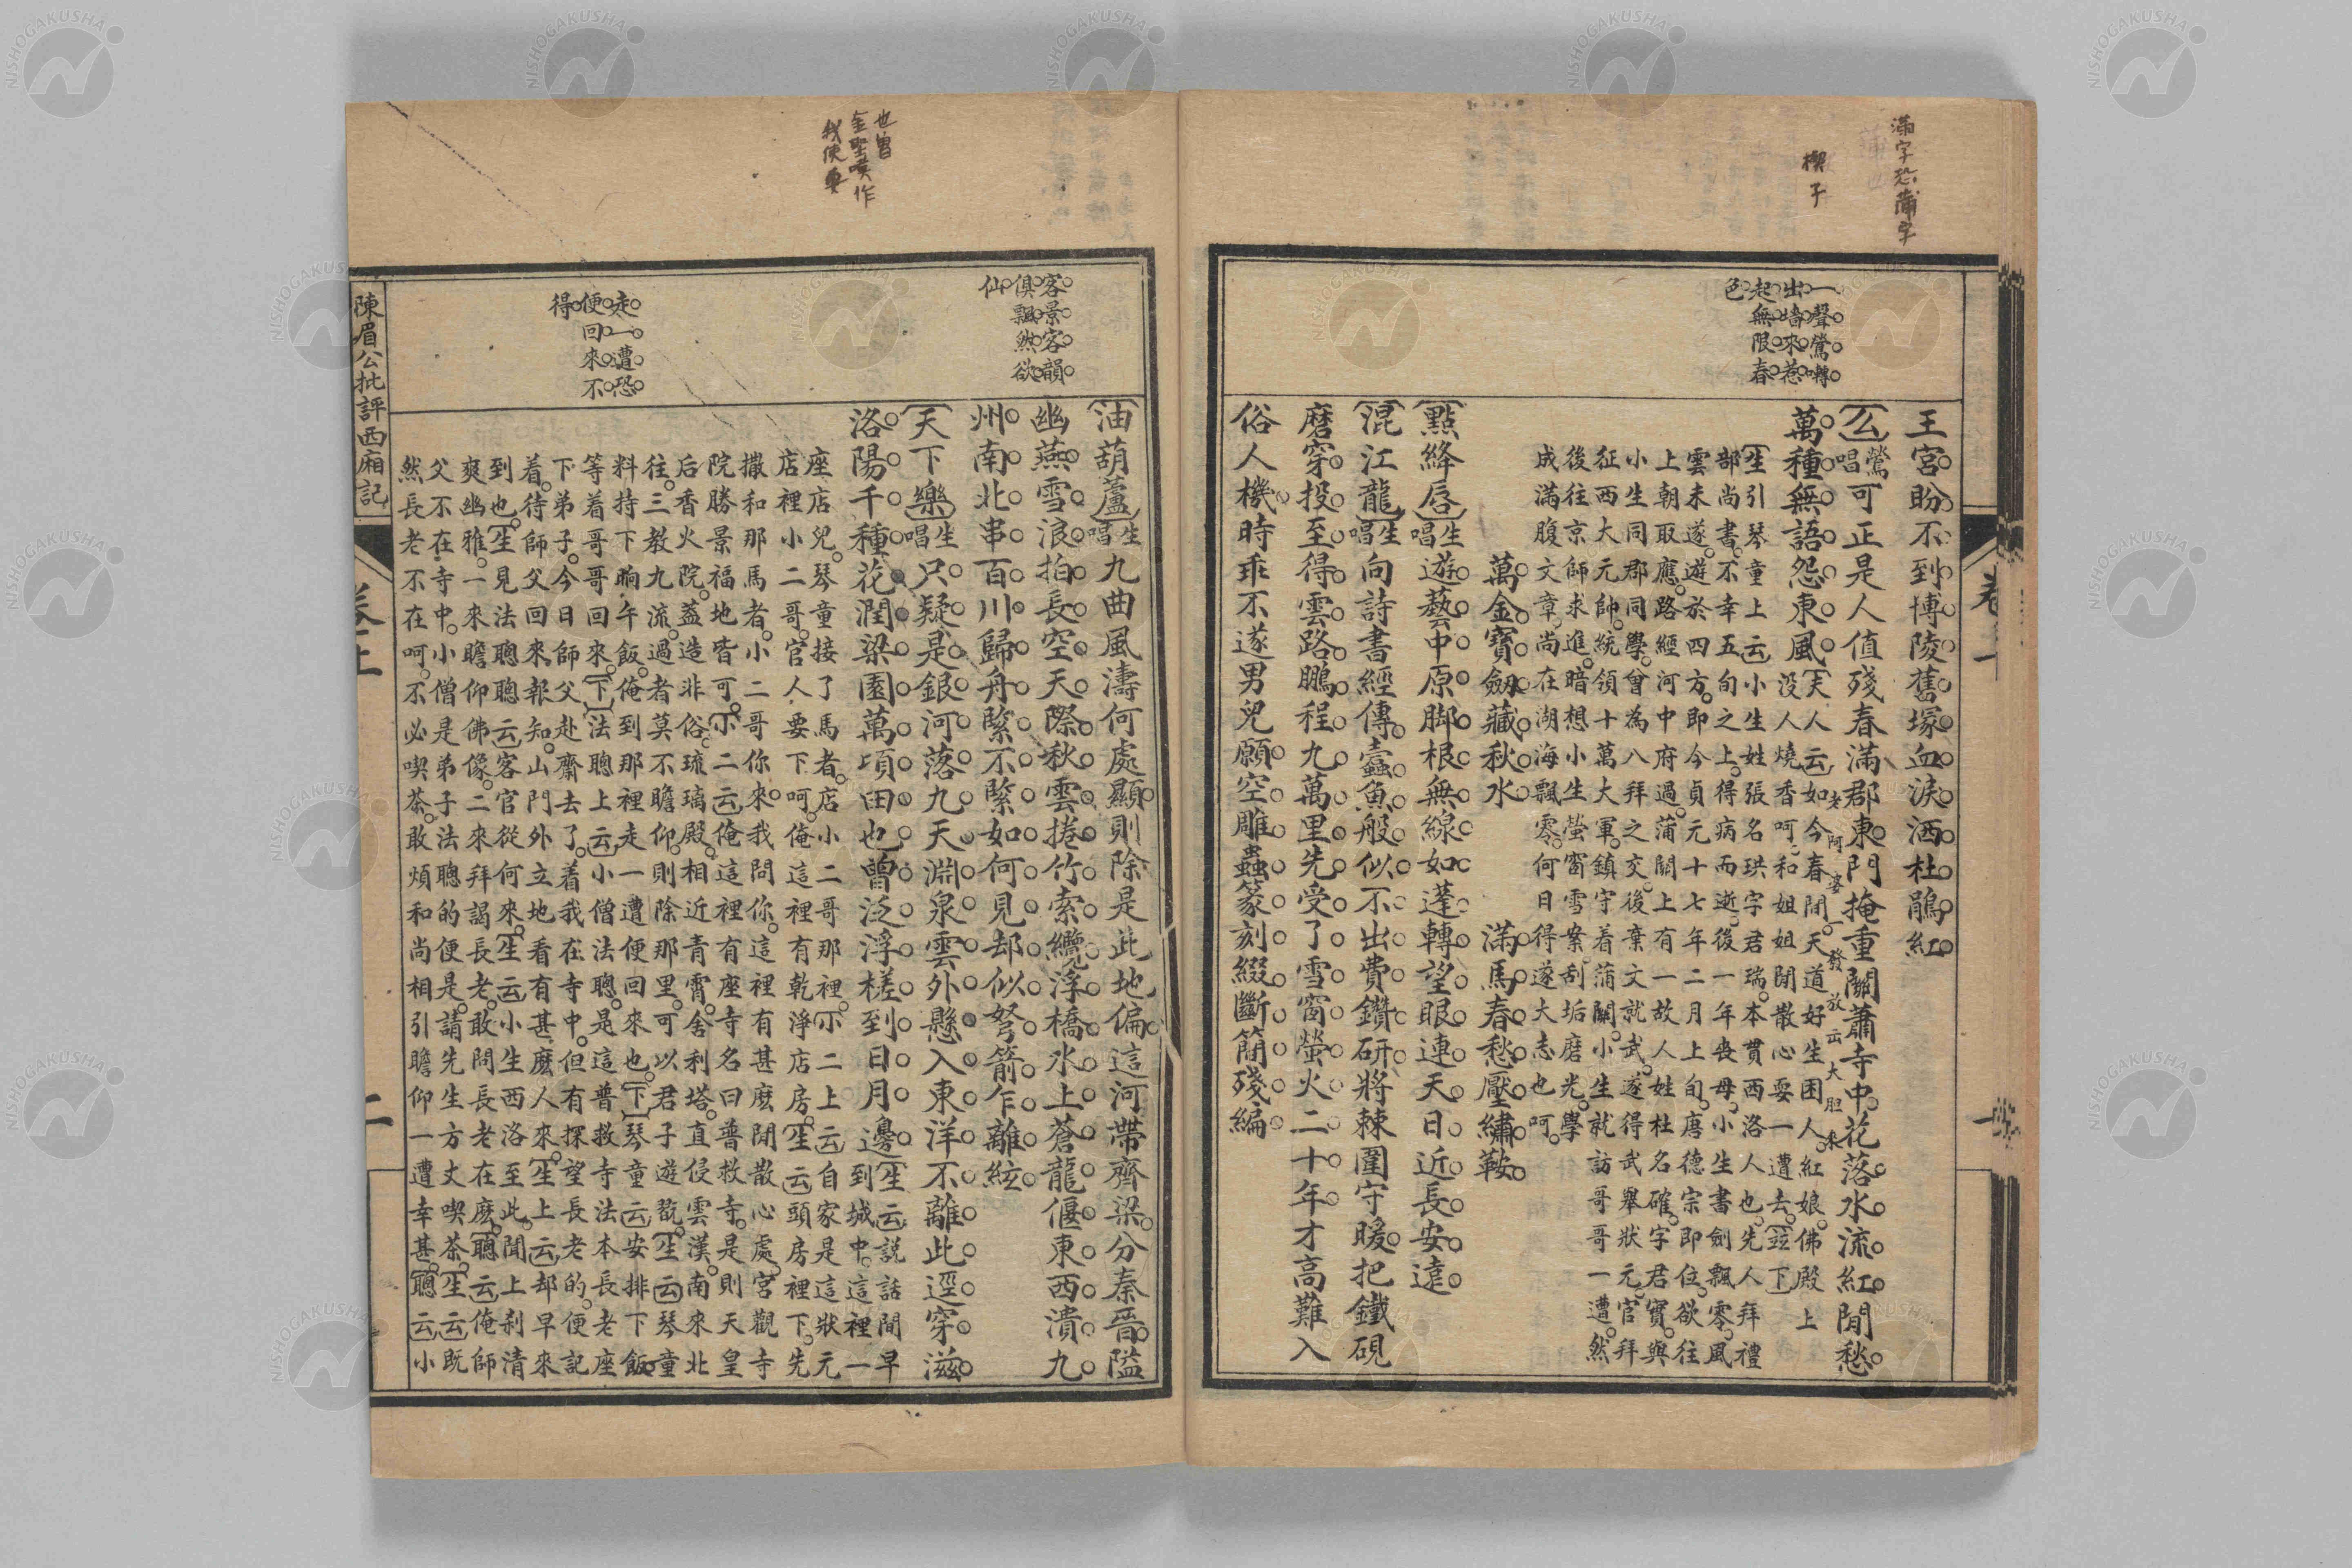 滿字恐蒲字
楔子
一聲鶯囀
出墻來惹
起無限春
色
王宮盼不到博陵舊塚血淚洒杜鵑紅
么 鶯唱 可正是人值殘春滿郡東門掩重關蕭寺中花落水流紅閒愁
老阿婆一發放出大胆來
萬種無語怨東風 夫人云 如今春間天道好生困人紅娘佛殿上
沒人燒香呵和姐姐閒散心耍一遭去 並下
生引琴童上云 小生姓張名珙字君瑞本貫西洛人也先人拜禮
部尚書不幸五旬之上得病而逝後一年喪母小生書劍飄零風
雲未遂遊於四方即今貞元十七年二月上旬唐德宗即位欲往
上朝取應路經河中府過蒲關上有一故人姓杜名確字君實與
小生同郡同學曾為八拜之交後棄文就武遂得武舉狀元官拜
征西大元帥統領十萬大軍鎮守着蒲關小生就訪哥哥一遭然
後往京師求進暗想小生螢窗雪案刮垢磨光學
成滿腹文章尚在湖海飄零何日得遂大志也呵
萬金寶劔藏秋水 滿馬春愁壓繡鞍
點絳唇 生唱 遊藝中原脚根無線如蓬轉望眼連天日近長安遠
混江龍 生唱 向詩書經傳蠹魚般似不出費鑽研將棘圍守暖把鐵硯
磨穿投至得雲路鵬程九萬里先受了雪窗螢火二十年才高難入
俗人機時乖不遂男兒願空雕蟲篆刻綴斷簡殘編
也曾
金聖嘆作
我便要
客景客韻
俱飄然欲
仙
走一遭恐
便回來不
得
油葫蘆 生唱 九曲風濤何處顯則除是此地偏這河帶齊梁分秦晉隘
幽燕雪浪拍長空天際秋雲捲竹索纜浮橋水上蒼龍偃東西潰九
州南北串百川歸舟緊不緊如何見却似弩箭乍離絃
天下樂 生唱 只疑是銀河落九天淵泉雲外懸入東洋不離此逕穿滋
洛陽千種花潤梁園萬頃田也曾泛浮槎到日月邊 生云 說話間早
到城中這裡一
座店兒琴童接了馬者店小二哥那裡 小二上云 自家是這狀元
店裡小二哥官人要下呵俺這裡有乾淨店房 生云 頭房裡下先
撒和那馬者小二哥你來我問你這裡有甚麼閒散心處宮觀寺
院勝景福地皆可 小二云 俺這裡有座寺名曰普救寺是則天皇
后香火院蓋造非俗琉璃殿相近青霄舍利塔直侵雲漢南來北
往三教九流過者莫不瞻仰則除那里可以君子遊翫 生云 琴童
料持下晌午飯俺到那裡走一遭便回來也 下 琴童云 安排下飯
等着哥哥回來 下 法聰上云 小僧法聰是這普救寺法本長老座
下弟子今日師父赴齋去了着我在寺中但有探望長老的便記
着待師父回來報知山門外立地看有甚麼人來 生上云 却早來
到也 生見法聰聰云 客官從何來 生云 小生西洛至此聞上刹清
爽幽雅一來瞻仰佛像二來拜謁長老敢問長老在麽 聰云 俺師
父不在寺中小僧是弟子法聰的便是請先生方丈喫茶 生云 既
然長老不在呵不必喫茶敢煩和尚相引瞻仰一遭幸甚 聰云 小
陳眉公批評西廂記
卷上
二